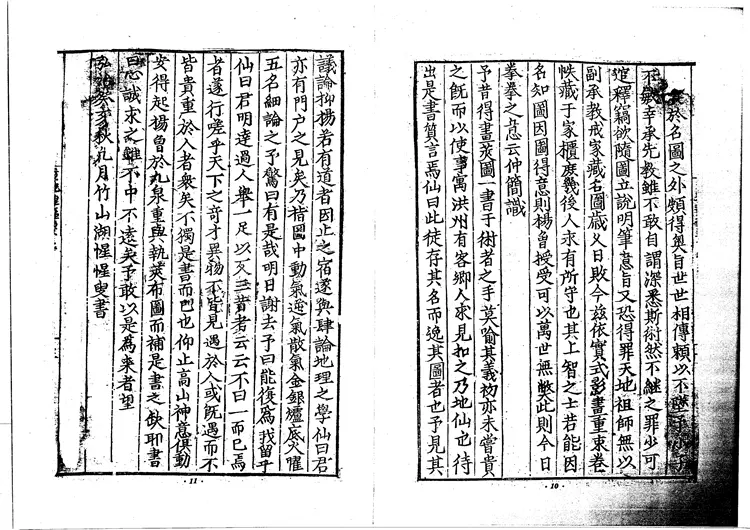 於名圖之外頗得奧旨世世相傳賴以不墜予小子
不敏幸承先教雖不敢自謂深悉斯術然不繼之罪少可
逭釋竊欲隨圖立說明筆意旨又恐得罪天地祖師無以
副承教戒家藏右圖歲乂日敗今茲依實式影畫重束卷
帙藏于家櫃庶幾後人永有所守也其上智之士若能因
名知圖因圖得意則楊曾授受可以萬世無弊此則今日
拳拳之意云仲簡識
予昔得畫莢圖一書于術者之手莫喻其義初亦未嘗貴
之旣而以使事寓洪州有客鄉人求見扣之乃地仙也待
出是書質言焉仙曰此徒存其名而逸其圖者也予見其
· 10 ·
議論抑揚若有道者因止之宿遂與肆論地理之學仙曰君
亦有門户之見矣乃楷圖中動氣逆氣散氣金銀爐底火曜
五名細論之予驚曰有是哉明日謝去予曰能復為我留乎
仙曰君明達過人舉一足以反三昔者云云不曰一而已焉
者遂行嗟乎天下之奇才異物不皆見遇於人或旣遇而不
皆貴重於人者衆矣不獨是書而巳也仰止高山神意俱動
安得起揚曾於九泉重與執莢布圖而補是書之缺耶書
曰心誠求之雖不中不遠矣予敢以是為來者望
弘治癸亥秋九月竹山湖惺惺叟書
· 11 ·